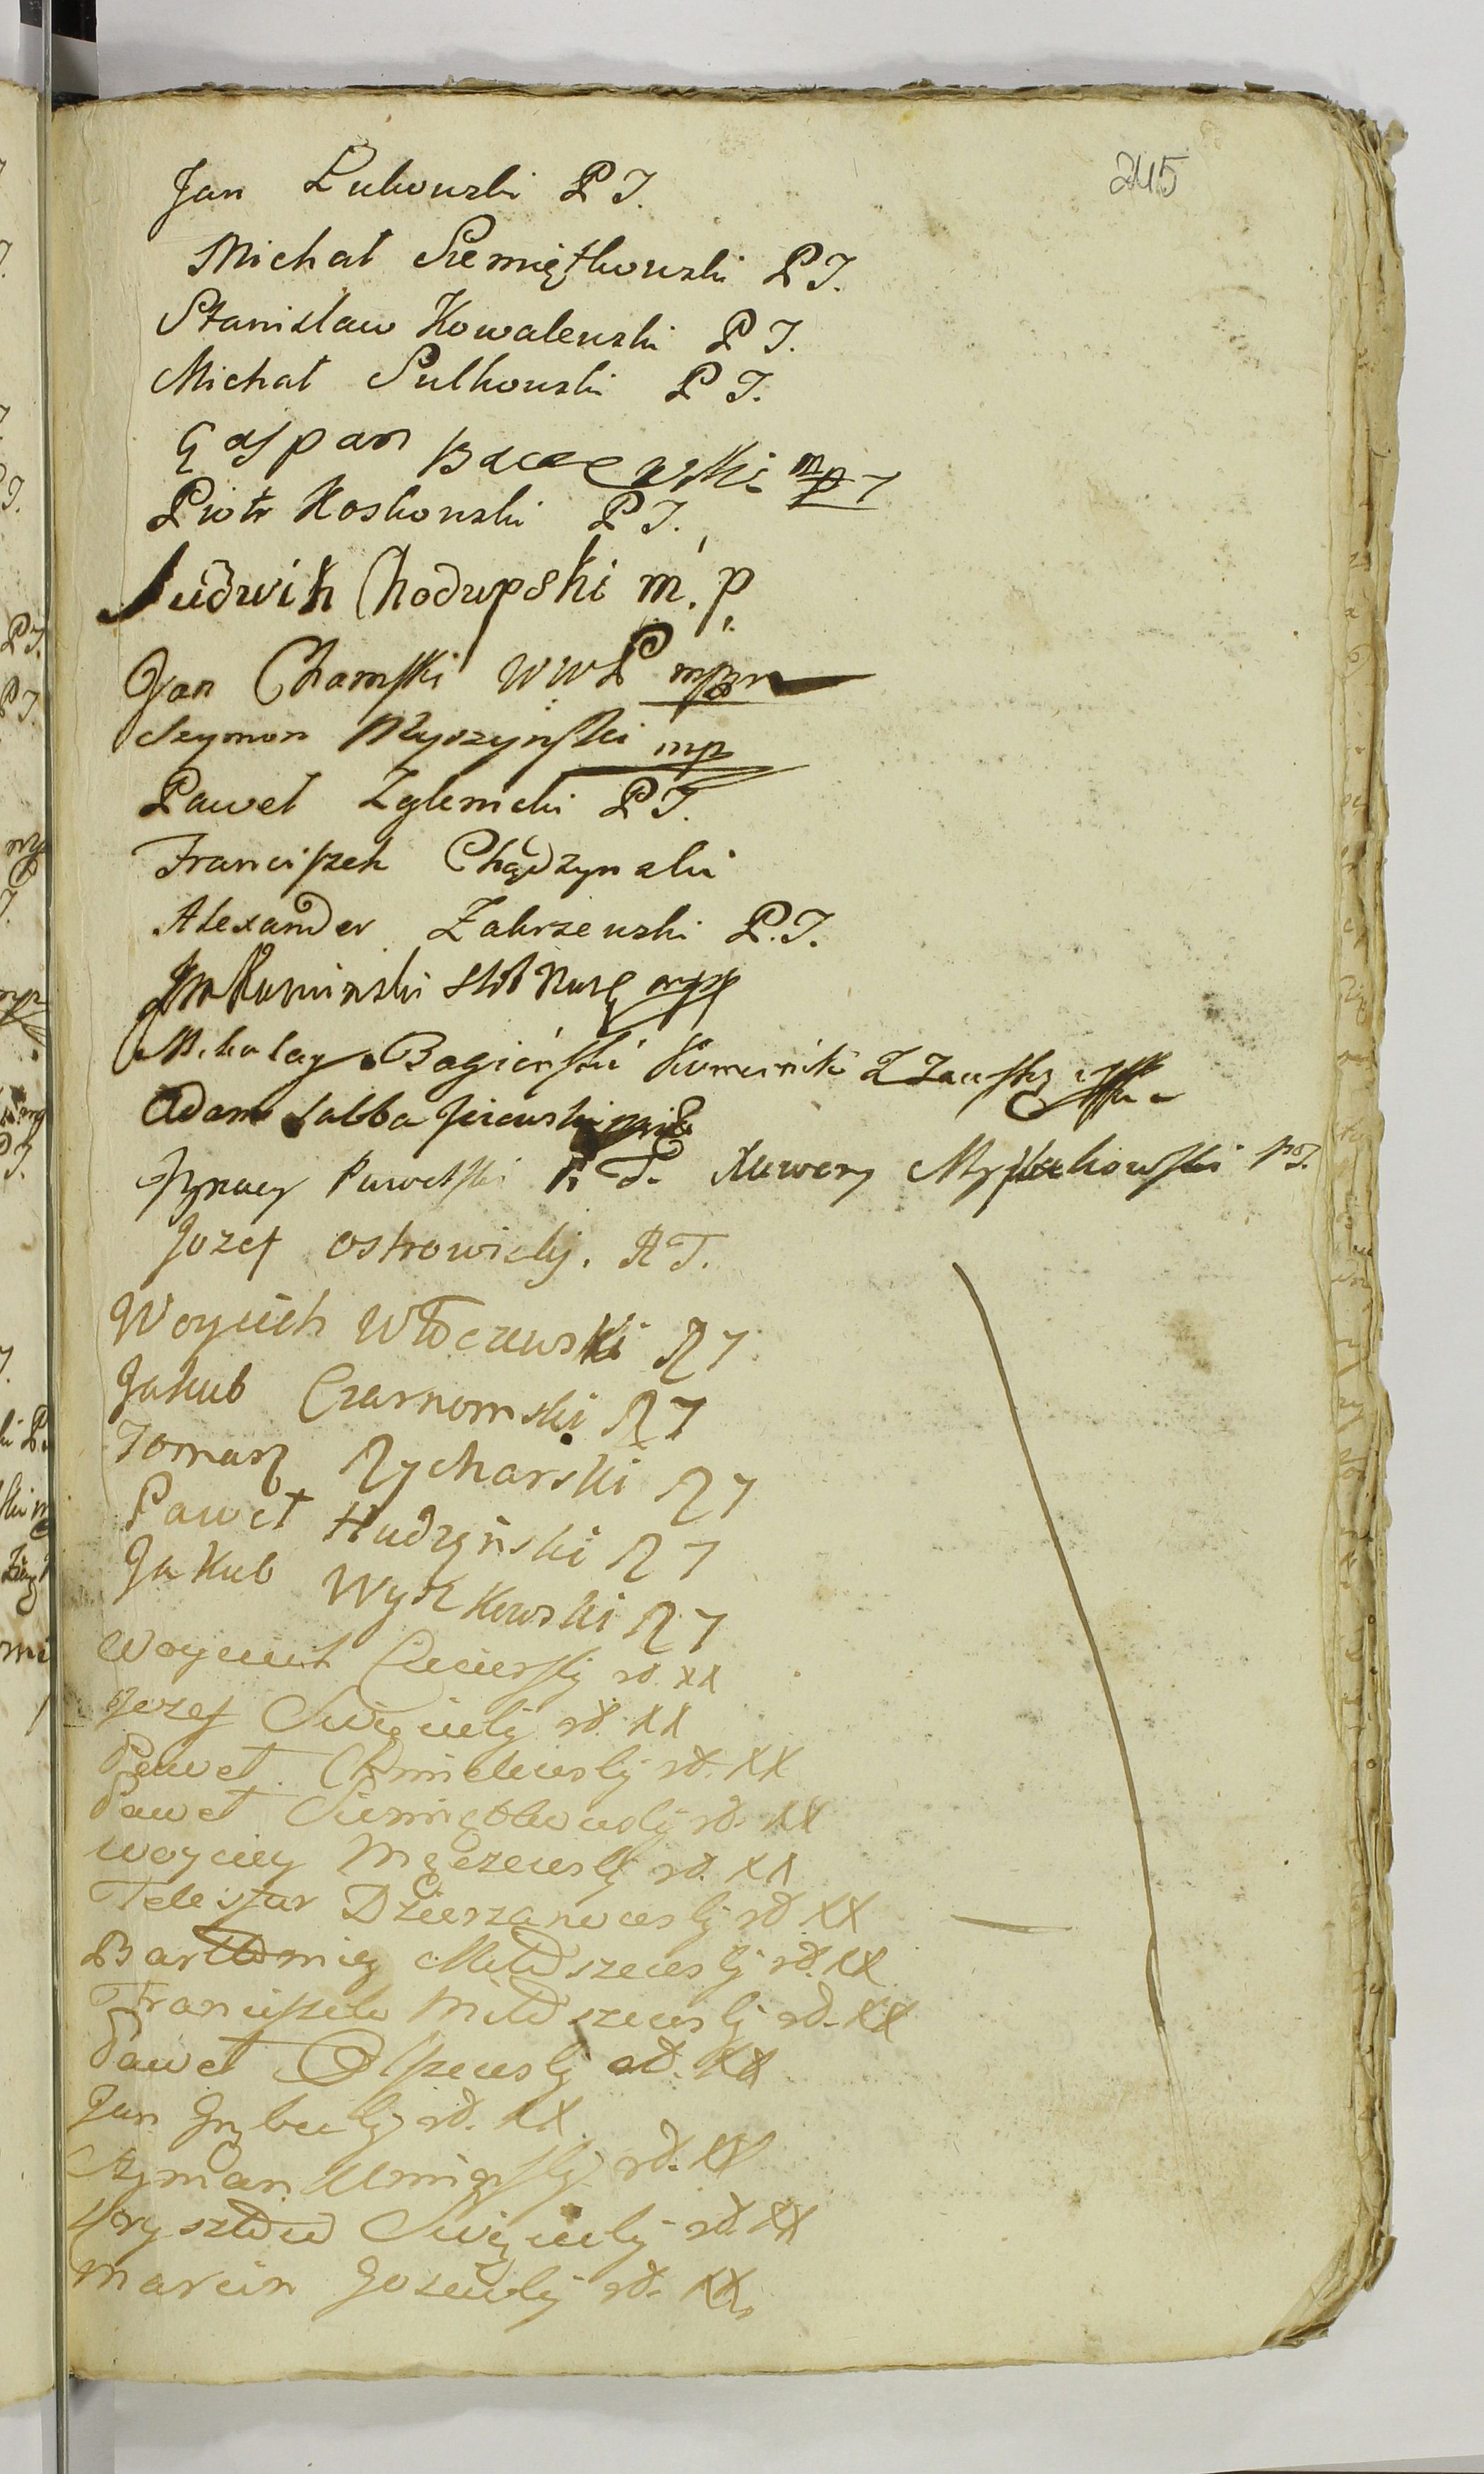 245
Jan Łukowski P J.
Michał Siemiętkowski P J.
Stanisław Kowalewski P J.
Michał Sulkowski P J.
Gaspar mp
Piotr Koskowski P J.
Ludwik Chodupski m. p.
Jan Chamski WWP mp
Szymon Myszyński mp
Paweł Zglenicki P J.
Franciszek Chądzynski
Alexander Zakrzewski P. J.
Jan Kumiński
Mikołay Bagieński Komornik Z Zawskrz
Adam Łabba
Ignacy Pawelski P. J. Xawery Myszkowski PJ.
Jozef Ostrowicky. R T.
Woyciech Włoczewski R J
Jakub Czarnomski R J
Tomasz Rycharski R J
Paweł Hudzyński R J
Jakub Wyszkowski R J
Woyciech rd. XX
Jozef Swięcicky rd. XX
Paweł Chmielewsky rd. XX
Paweł Siemiątkowsky rd. XX
Woyciey Mączewsky rd. XX
Telesfor Dzierzanowsky rd XX
Bartłomiey Miłoszewsky rd. XX
Franciszek Miłoszewsky rd. XX
Paweł Olszewsky rd. XX
Jan Grzybicky rd. XX
Szyman rd. XX
Krysztow Swięcicky rd. XX
Marcin Gosewsky rd. XX